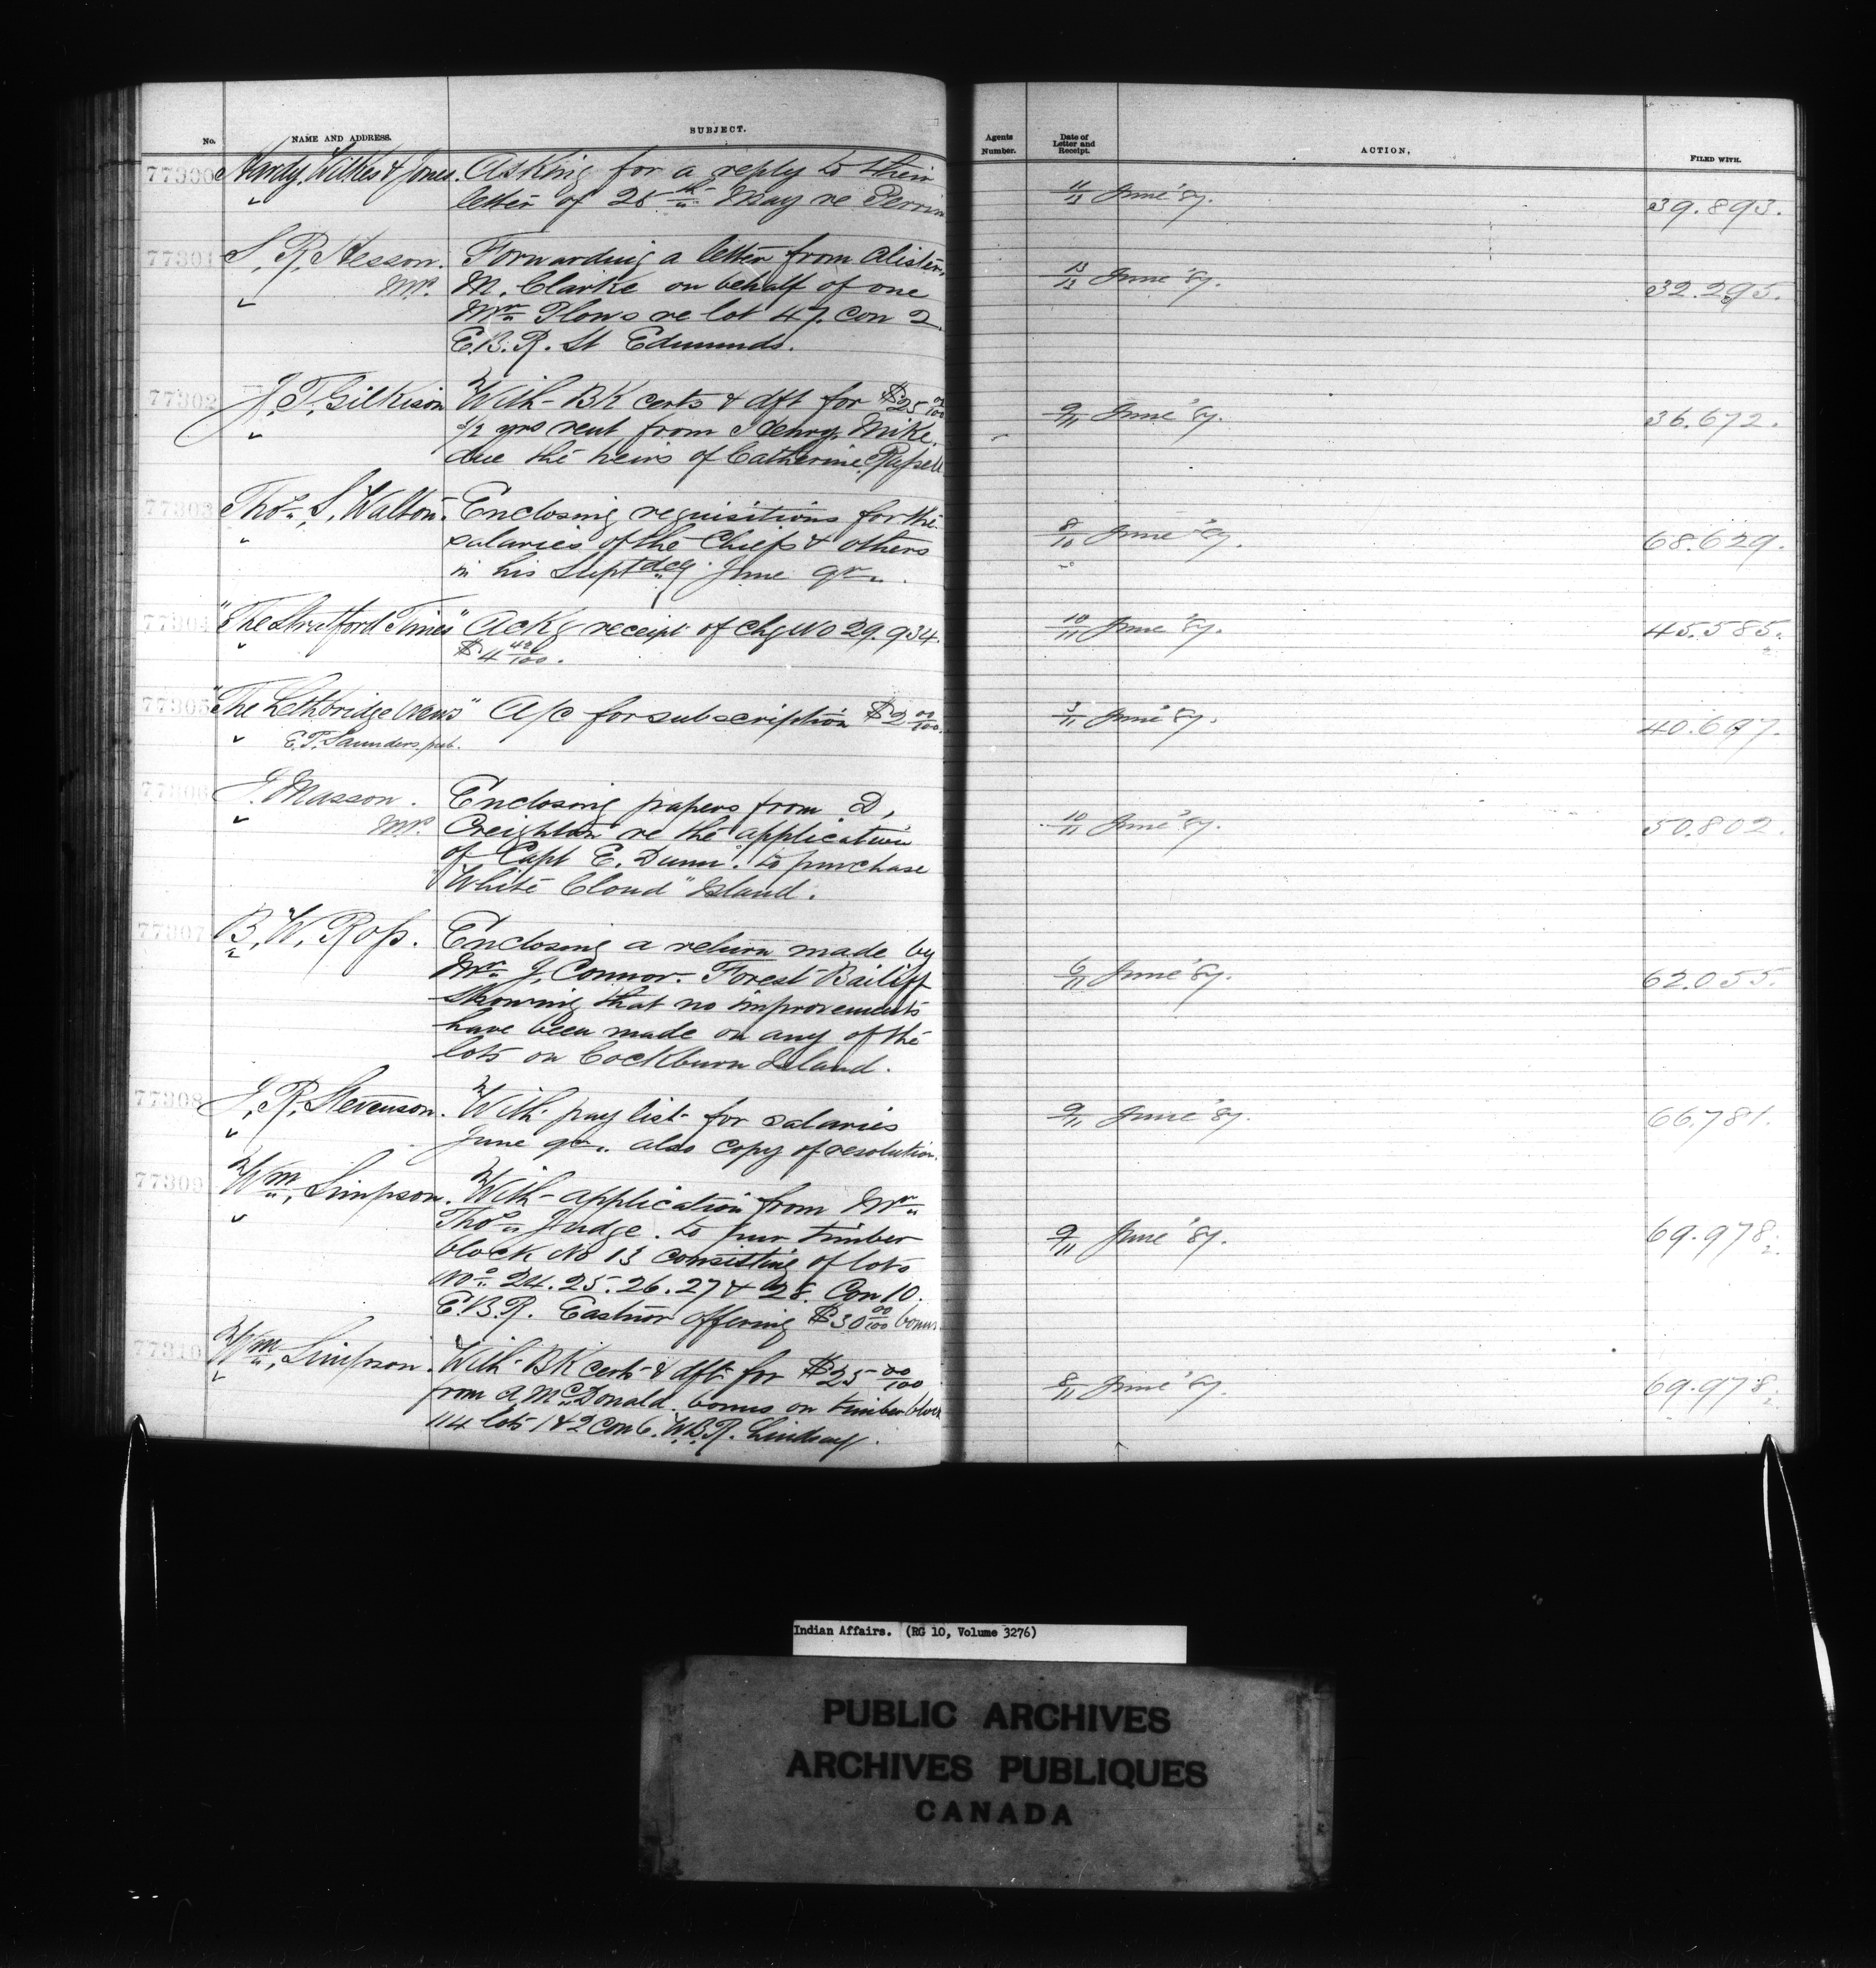 No. NAME AND ADDRESS. SUBJECT. Agents Number. Date of Letter and Receipt. ACTION. FILED WITH.
77300 Hardy, Wilkes & Jones. Asking for a reply to their
letter of 28th May re Perrin 11/13 June '87. 39.893.
77301 S. R. Hesson. Forwarding a letter from Alister,
MP. M. Clarke on behalf of one 13/13 June '87. 32.295.
Mr Plows re lot 47. Con 2.
E.B.R. St Edmunds.
77302 J. T. Gilkison With BK certs & dft for $25 00/100
1/2 yrs rent from Henry Mike. 9/11 June '87. 36.672.
due the heirs of Catherine Russell
77303 Thos. S. Walton. Enclosing requisitions for the
salaries of the Chiefs & others 8/10 June '87. 68.629.
in his Suptdcy. June qr.
77304 "The Stratford Times" Ackg receipt of chq No 29.934. 10/11 June '87. 45.585.
$4 42/100.
77305 "The Lethbridge News" A/c for subscription $2 00/100. 3/11 June '87. 40.697.
E. T. Saunders. pub.
77306 J. Masson. Enclosing papers from D,
MP. Creighton re the application 10/11 June '87. 50.802.
of Capt E. Dunn. to purchase
"White Cloud" Island.
77307 B. W. Ross. Enclosing a return made by
Mr J. Connor. Forest Bailiff 6/11 June '87. 62.055.
Showing that no improvements
have been made on any of the
lots on Cockburn Island.
77308 J. R. Stevenson. With pay list for salaries 9/11 June '87. 66.781.
June qr. also copy of resolution.
77309 Wm. Simpson. With application from Mr
Thos Judge. to pur timber
block No 13 consisting of lots 9/11 June '87. 69.978 1/2.
Nos 24.25.26.27 & 28. Con 10.
E.B.R. Eastnor offering $30 00/100 bonus.
77310 Wm. Simpson. With BK cert & dft for $25 00/100 8/11 June '87. 69.978 1/2
from A. McDonald. bonus on timber block
114 lots 1 & 2 Con 6. W.B.R. Lindsay.
Indian Affairs. (RG 10, Volume 3276)
PUBLIC ARCHIVES
ARCHIVES PUBLIQUES
CANADA